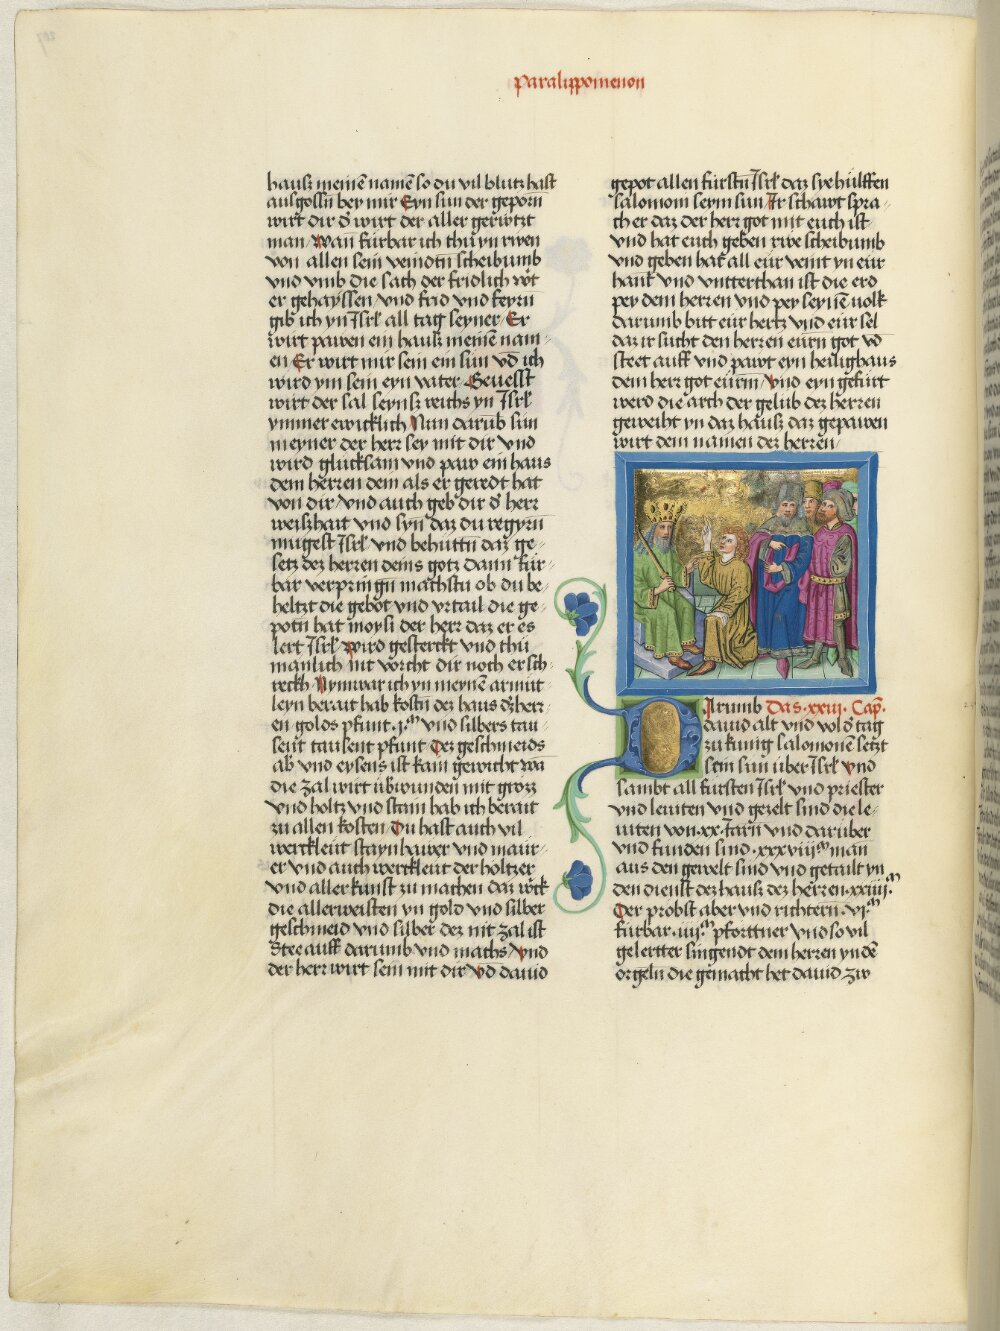 Paralippomenon
hausz meinē namē so du vil blutz hast
ausgossn bey mir Eyn sun der geporn
wirt dir d̄ wirt der aller gerwtzt
man Wan fürbar ich thu yn rwen
von allen sein veindtn scheibumb
vnd vmb die sach der fridlich wt
er gehayssen vnd frid vnd feyrn
gib ich yn Isrl̄ all tag seyner Er
wirt pawen ein hausz meinē nam-
en Er wirt mir sein ein sun vd ich
wird ym sein eyn vater Geuesst
wirt der sal seynsz reichs yn Isrl̄
ymmer ewicklich Nun darūb sun
meyner der herr sey mit dir vnd
wird glucksam vnd paw ein haus
dem herren dem als er geredt hat
von dir vnd auch geb dir d̄ herr
weiszhait vnd syn daz du regyrn
mugest Isrl̄ vnd behuttn daz ge-
setz dez herren deins gotz dann für-
bar verpringn machstu ob du be-
heltzt die gebot vnd vrtail die ge-
potn hat moysi der herr daz er es
lert Isrl̄ wird gesterckt vnd thu
manlich nit vorcht dir noch ersch-
reckh Nymwar ich yn meynē armut
leyn berait hab kostn dez haus dz herr-
en golds pfunt .j.ͫ vnd silbers tau
sent tausent pfunt Dez geschmeids
ab vnd eysens ist kain gewicht wā
die zal wirt übwunden mit grosz
vnd holtz vnd stain hab ich berait
zu allen kosten Du hast auch vil
werckleut staynhawer vnd maur-
er vnd auch werckleut der höltzer
vnd aller kunst zu machen daz wck
die allerweisten yn gold vnd silber
geschmeid vnd silber dez nit zal ist
Stee auff darumb vnd machs Vnd
der herr wirt sein mit dir Vd dauid
gepot allen fürstn Isrl̄ daz sye hülffen
salomoni seym sun Ir schawt spra-
ch er daz der herr got mit euch ist
vnd hat euch geben rwe scheibumb
vnd geben hat all eür veint yn eür
hant vnd vntterthan ist die erd
pey dem herren vnd pey seynē uolk
darumb bitt eür hertz vnd eür sel
daz ir sucht den herren eürn got vd
steet auff vnd pawt eyn heilighaus
dem herr got eürm Vnd eyn gefürt
werd die arch der gelüb dez herren
geweiht yn daz hausz daz gepawen
wirt dem namen dez herren
DArumb Das .xxiii. Cap̄.
dauid alt vnd vol d̄ tag
zu kunig salomonē setzt
sein sun über Isrl̄ Vnd
sambt all fürsten Isrl̄ vnd priester
vnd leuiten vnd gezelt sind die le-
uiten von .xx. Jarn vnd darüber
vnd funden sind .xxxviii.ͫ man
aus den gewelt sind vnd getailt yn
den dienst dez hausz dez herren .xxiiii.ͫ
Der probst aber vnd richtern .vi.ͫ
fürbar .iiii.ͫ pforttner vnd so vil
gelertter singendt dem herren yn dē
orgeln die gemacht het dauid zw